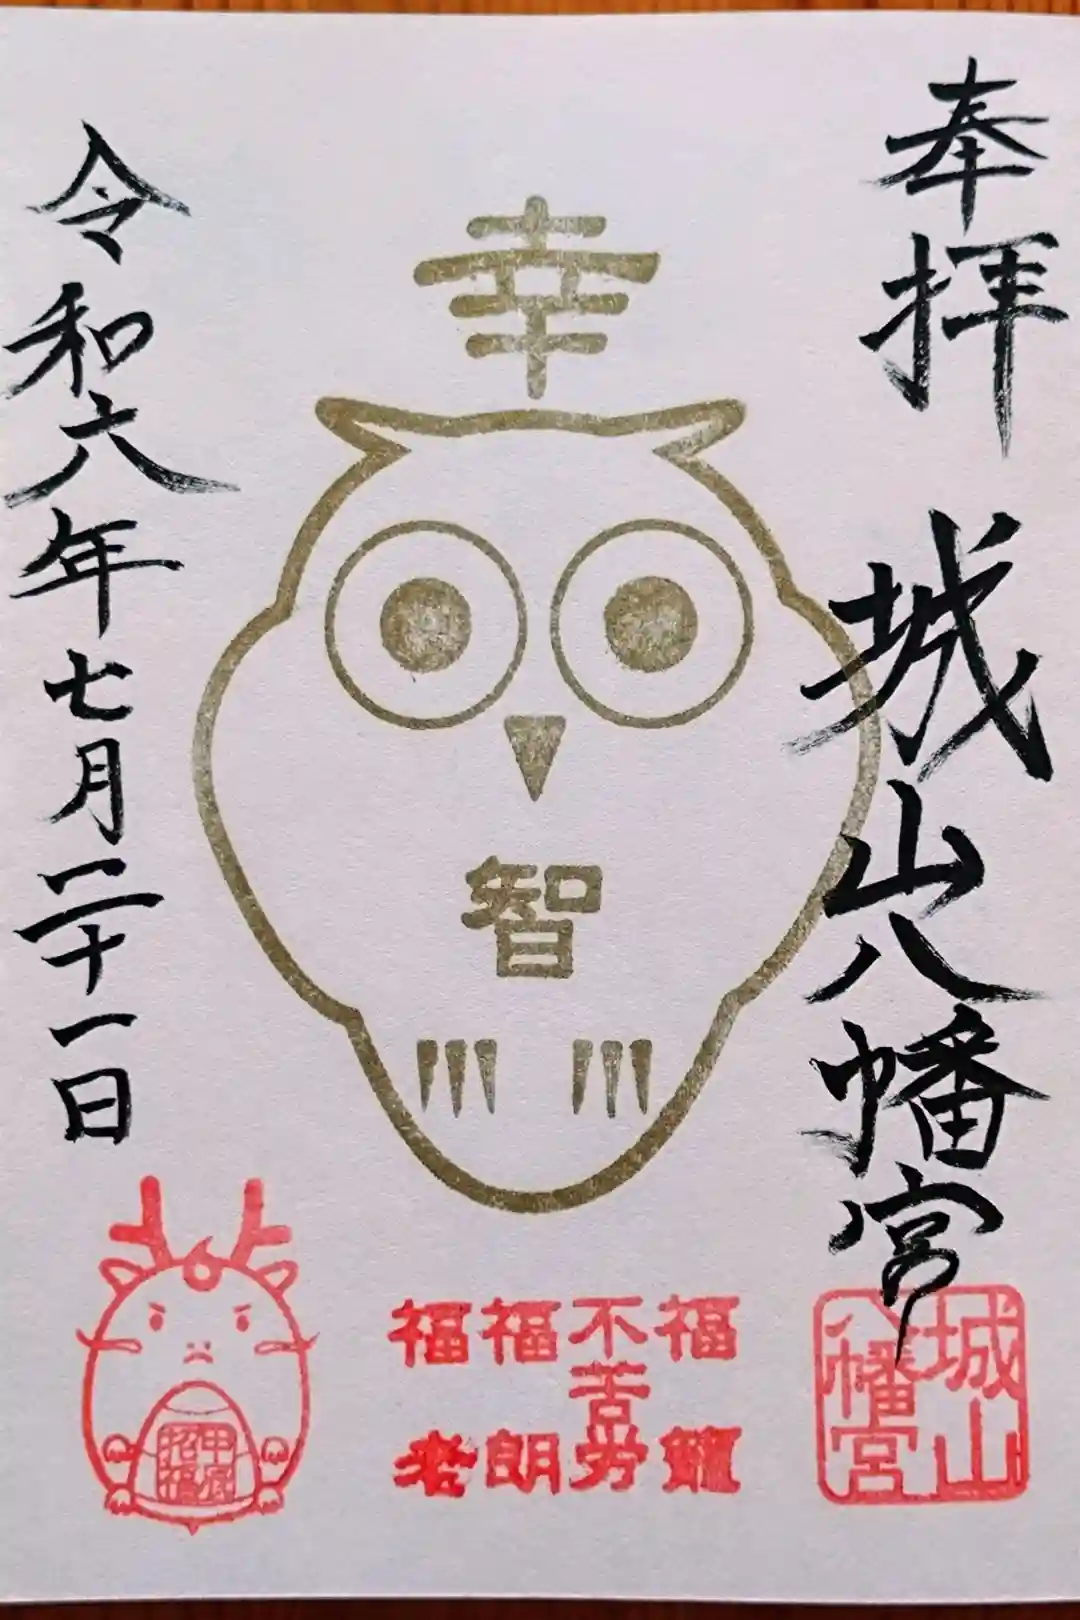 奉拝
城山八幡宮
城山
八幡宮
幸
智
福籠
不苦労
福朗
福老
令和六年七月二十一日
招福